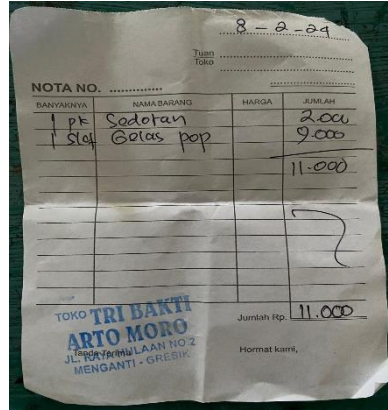 8-2-24
Tuan
Toko
NOTA NO.
BANYAKNYA NAMA BARANG HARGA JUMLAH
1 pk Sedotan 2.000
1 Slof Gelas pop 9.000
11.000
Jumlah Rp. 11.000
TOKO TRI BAKTI
ARTO MORO
Tanda Terima
JL. RAYA HULAAN NO 2
MENGANTI - GRESIK
Hormat kami,